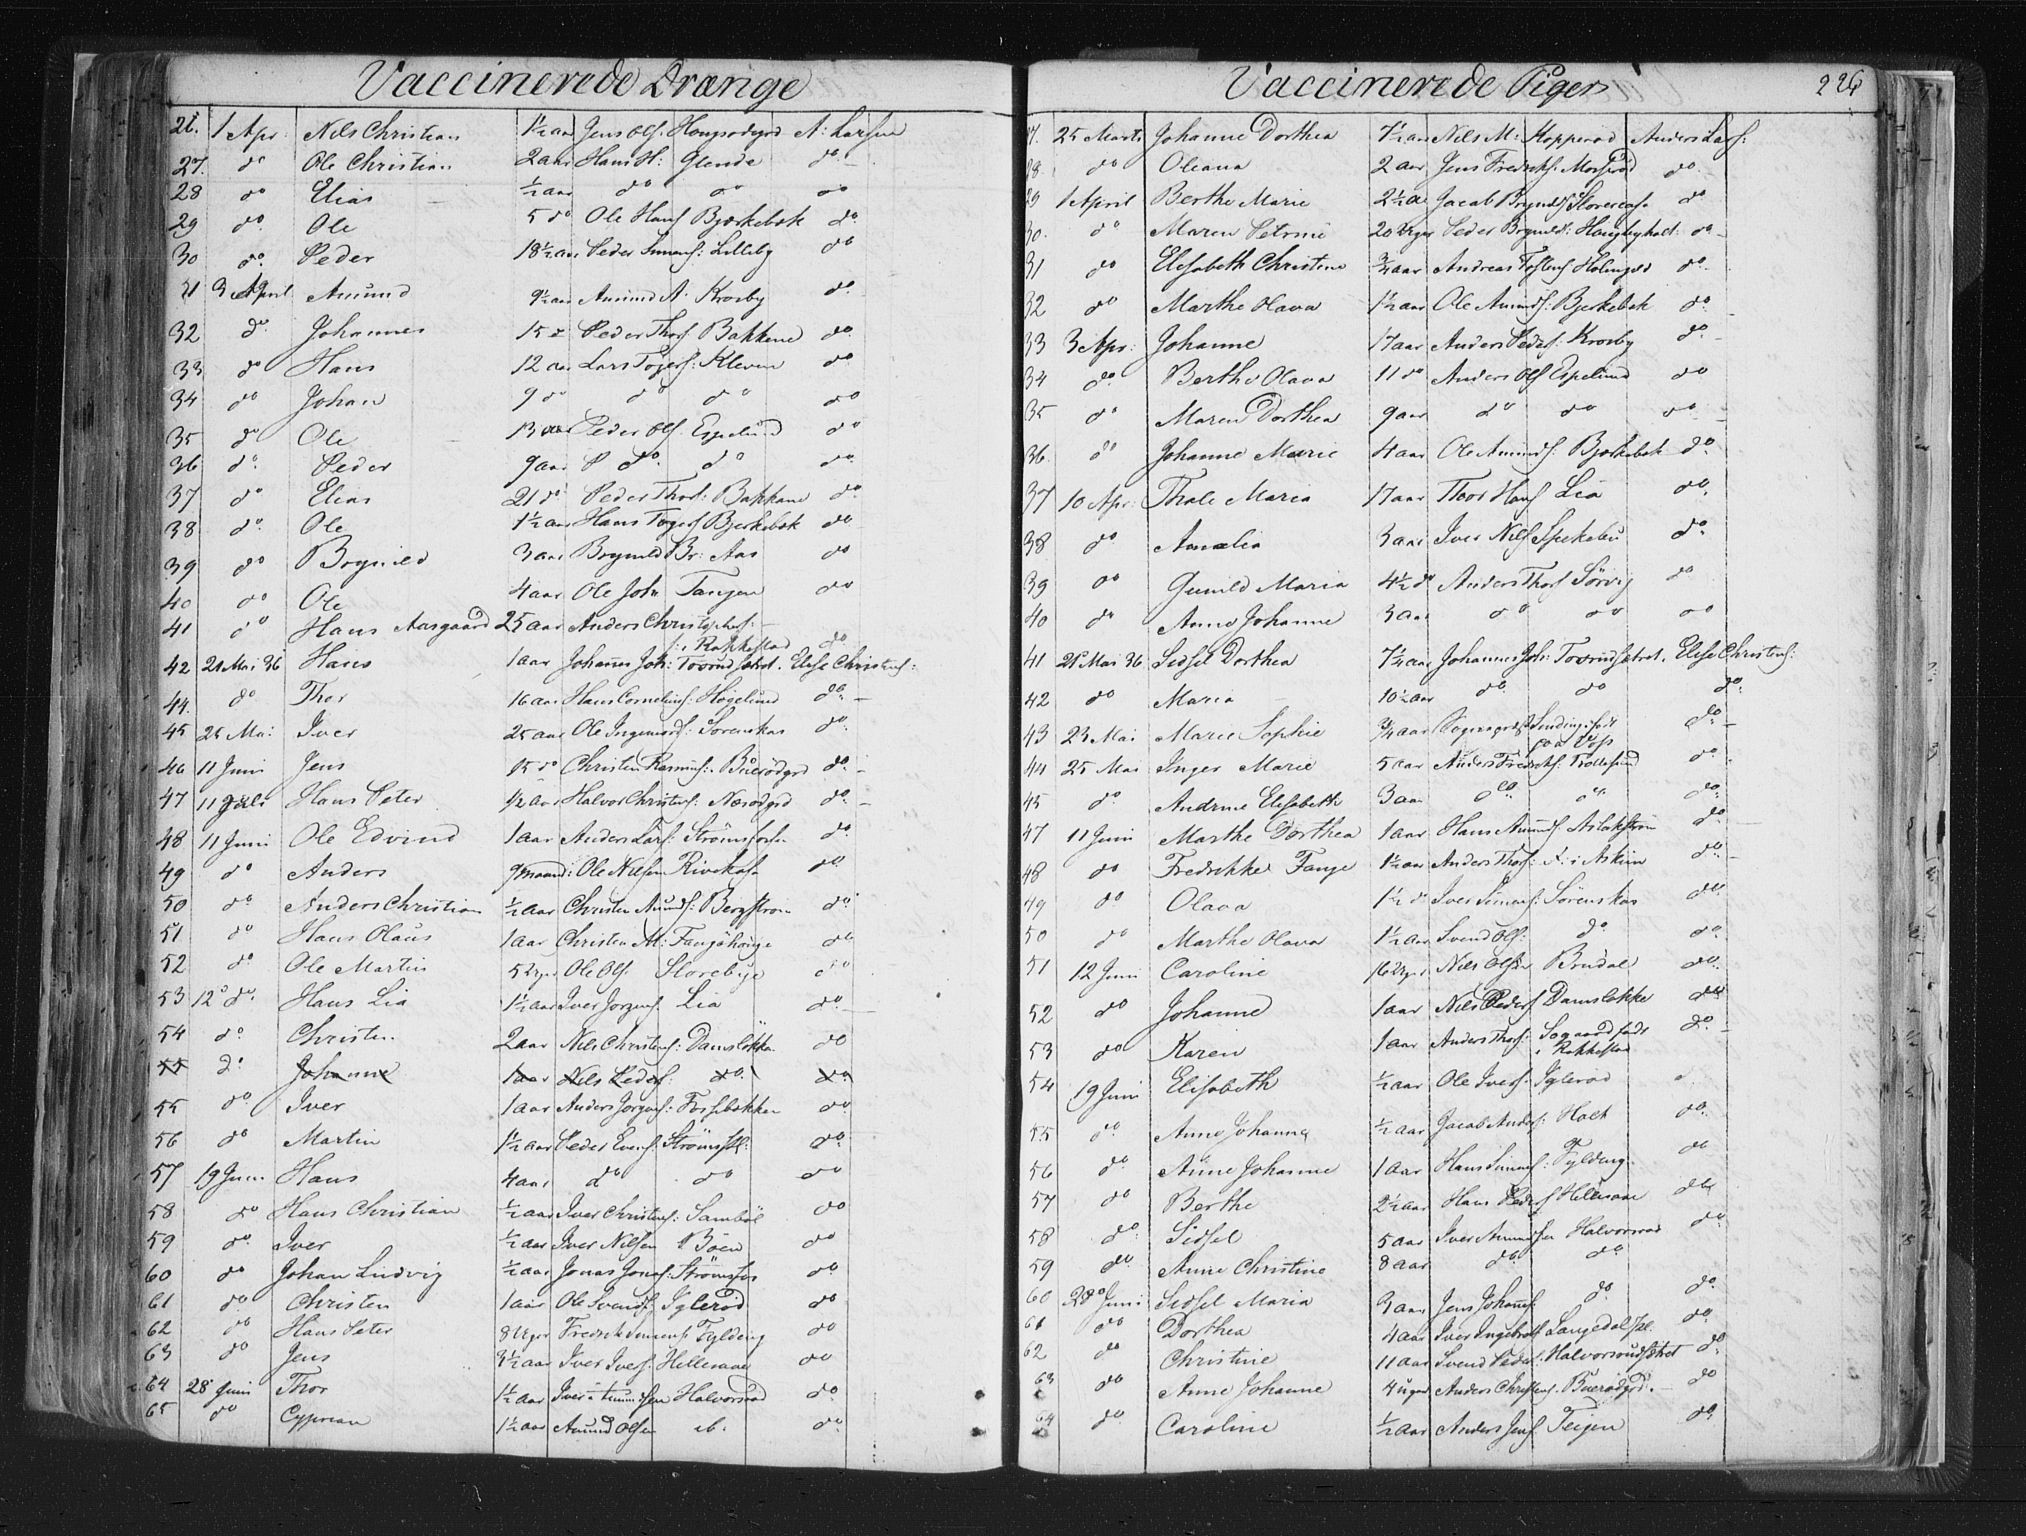 Vaccinerede Drænge
26. 1 Apr: Nils Christian 1½ aar Jens Ols: Hougsødgrd A: Larsen
27. do Ole Christian 2 aar Hans H: Glende do
28 do Elias ½ aar do do do
29 do. Ole 5 do Ole Hans Bjørkebek do.
30 do. Peder 18½ aar Peder Simens: Lilleby do
31 3 April Amund 9½ aar Amund A. Krosby do.
32 do. Johannes 15 Peder Thors Bakkene do.
33 do Hans 12 aar Lars Togers: Kleven do
34 do Johan 9 do do do do
35 do. Ole 13 aar Peder Ols: Espelund do
36 do. Peder 9 aar do. do do.
37 do Elias 21 do Peder Thors: Bakkene do.
38 do. Ole 1½ aar Hans Togers Bjerkebek do
39 do Brynild 3 aar Brynild Br: Aas do
40 do Ole 4 aar Ole Joh Tangen do
41 do Hans Aasgaard 25 aar Anders Christophers:
i Rakkestad do
42 21 Mai 36 Hans 1 aar Johannes Joh: Tosrudsætret. Elise Christens:
44. do Thor 16 aar Hans Cornelius: Høgelund do.
45 25 Mai Iver 25 aar Ole Ingemors: Sørenskas do.
46 11 Juni Jens 15 do Christen Rasmus: Buerødgrd do.
47 11 Juli Hans Peter ½ aar Halvor Christens: Næsødgrd do.
48 11 Juni Ole Edvind 1 aar Anders Lars: Strømsfoss do.
49 do Anders 9 maand: Ole Nilsen Rivekas do
50 do Anders Christian ½ aar Christen Amunds: Bergstrøm do
51 do Hans Olaus 1 aar Christen A: Fangehønge do
52 do. Ole Martin 5 Uger Ole Ols: Storebye do
53 12 do. Hans Lia 1½ aar Iver Jørgens: Lia do.
54 do. Christen 2 aar Nils Christens: Damsløkka do
55 do Johanne 1 aar Nils Peders: do. do
55 do Iver 1 aar Anders Jørgens: Fossebækken do
56 do Martin 1½ aar Peder Evens: Strømsfl: do.
57 19 Juni Hans 4 aar do do do
58 do Hans Christian ½ aar Iver Christens: Sambøl do
59 do. Iver ½ aar Iver Nilsen Bøen do
60 do Johan Ludvig ½ aar Jonas Jonas: Strømsfos do.
61 do. Christen 1 aar Ole Svends: Iglerød do
62 do Hans Peter 8 Uger Fredrik Simens: Fylding do
63 do Jens 3½ aar Iver Ivers: Hellesaae do
64 28 Juni Thor 1½ aar Iver Amundsen Halvorsrød do.
65 do Cyprian 1½ aar Amund Olsen ib. do.
Vaccinerede Piger 226
27. 25 Marts Johanne Dorthea 7½ aar Nils M: Kopperød Anders Lars:
28 do Oleana 2 aar Jens Fredriks: Mosserød do.
29 1 April Berthe Marie 2½ aar Jacob Brynilds do
30. do Maren Petrine 20 Uger Peder Brynilds: do
31 do Elisabeth Christine ¾ aar Andreas do.
32 do Marthe Olava 1½ aar Ole Amunds: Bjerkebek do
33 3 Apr: Johanne 17 aar Anders Peders: Krosby do
34 do. Berthe Olava 11 do Anders Ols Espelund do
35 do Maren Dorthea 9 aar do do do
36. do Johanne Marie 4 aar Ole Amunds: Bjørkebek do.
37 10 Apr: Thale Maria 17 aar Thor Hans Lia do.
38 do Amalia 3 aar Iver Nils Spekebu do
39 do Gunild Maria 4½ do Anders Thors Sørvig do
40 do Anne Johanne 3 aar do do do
41 21 Mai 36 Sidsel Dorthea 7½ aar Johannes Joh: Tosrudsætret. Elise Christens:
42 do Maria 10½ aar do. do do.
43 23 Mai Marie Sophie ¾ aar Sogneprest Sinding: født do.
paa Voss
44 25 Mai Inger Marie 5 aar Anders Fredriks: Trollesund do.
45 do. Andrine Elisabeth 3 aar do do. do.
47 11 Juni Marthe Dorthea 1 aar Hans Amunds: Aslakstrøm do.
48 do Fredrikke Fange 1½ aar Anders Thors: i Askim do.
49 do Olava 1½ do Iver Simens: Sørenskas do
50 do Marthe Olava 1½ aar Svend Ols: do. do.
51 12 Juni Caroline 16 Uger Nils Olsen Brudal do.
52 do Johanne 1 aar Nils Peders Damsløkke do
53 do Karen 1 aar Anders Thors: Sogaard født do.
i Rakkestad
54 19 Juni Elisabeth ½ aar Ole Ivers: Iglerød
55 do. Anne Johanne ½ aar Jacob Anders: Holt do.
56 do. Anne Johanne 1 aar Hans Simens: Fylding do
57 do Berthe 2½ aar Hans Peders Hellesaae do
58 do. Sidsel 5 aar Iver Amundsen Halvorsrød do.
59 do. Anne Christine 8 aar do do
60 28 Juni Sidsel Maria 3 aar Jens Johans: do do.
61 do Dorthea 4 aar Iver Ingebrets Langedal pl: do
62 do Christine 11 aar Svend Peders: Halvorsrudsætret do
63 do Anne Johanne 4 uger Anders Christens: Buerødgrd. do
64 do. Caroline ½ aar Anders Jens Teigen do